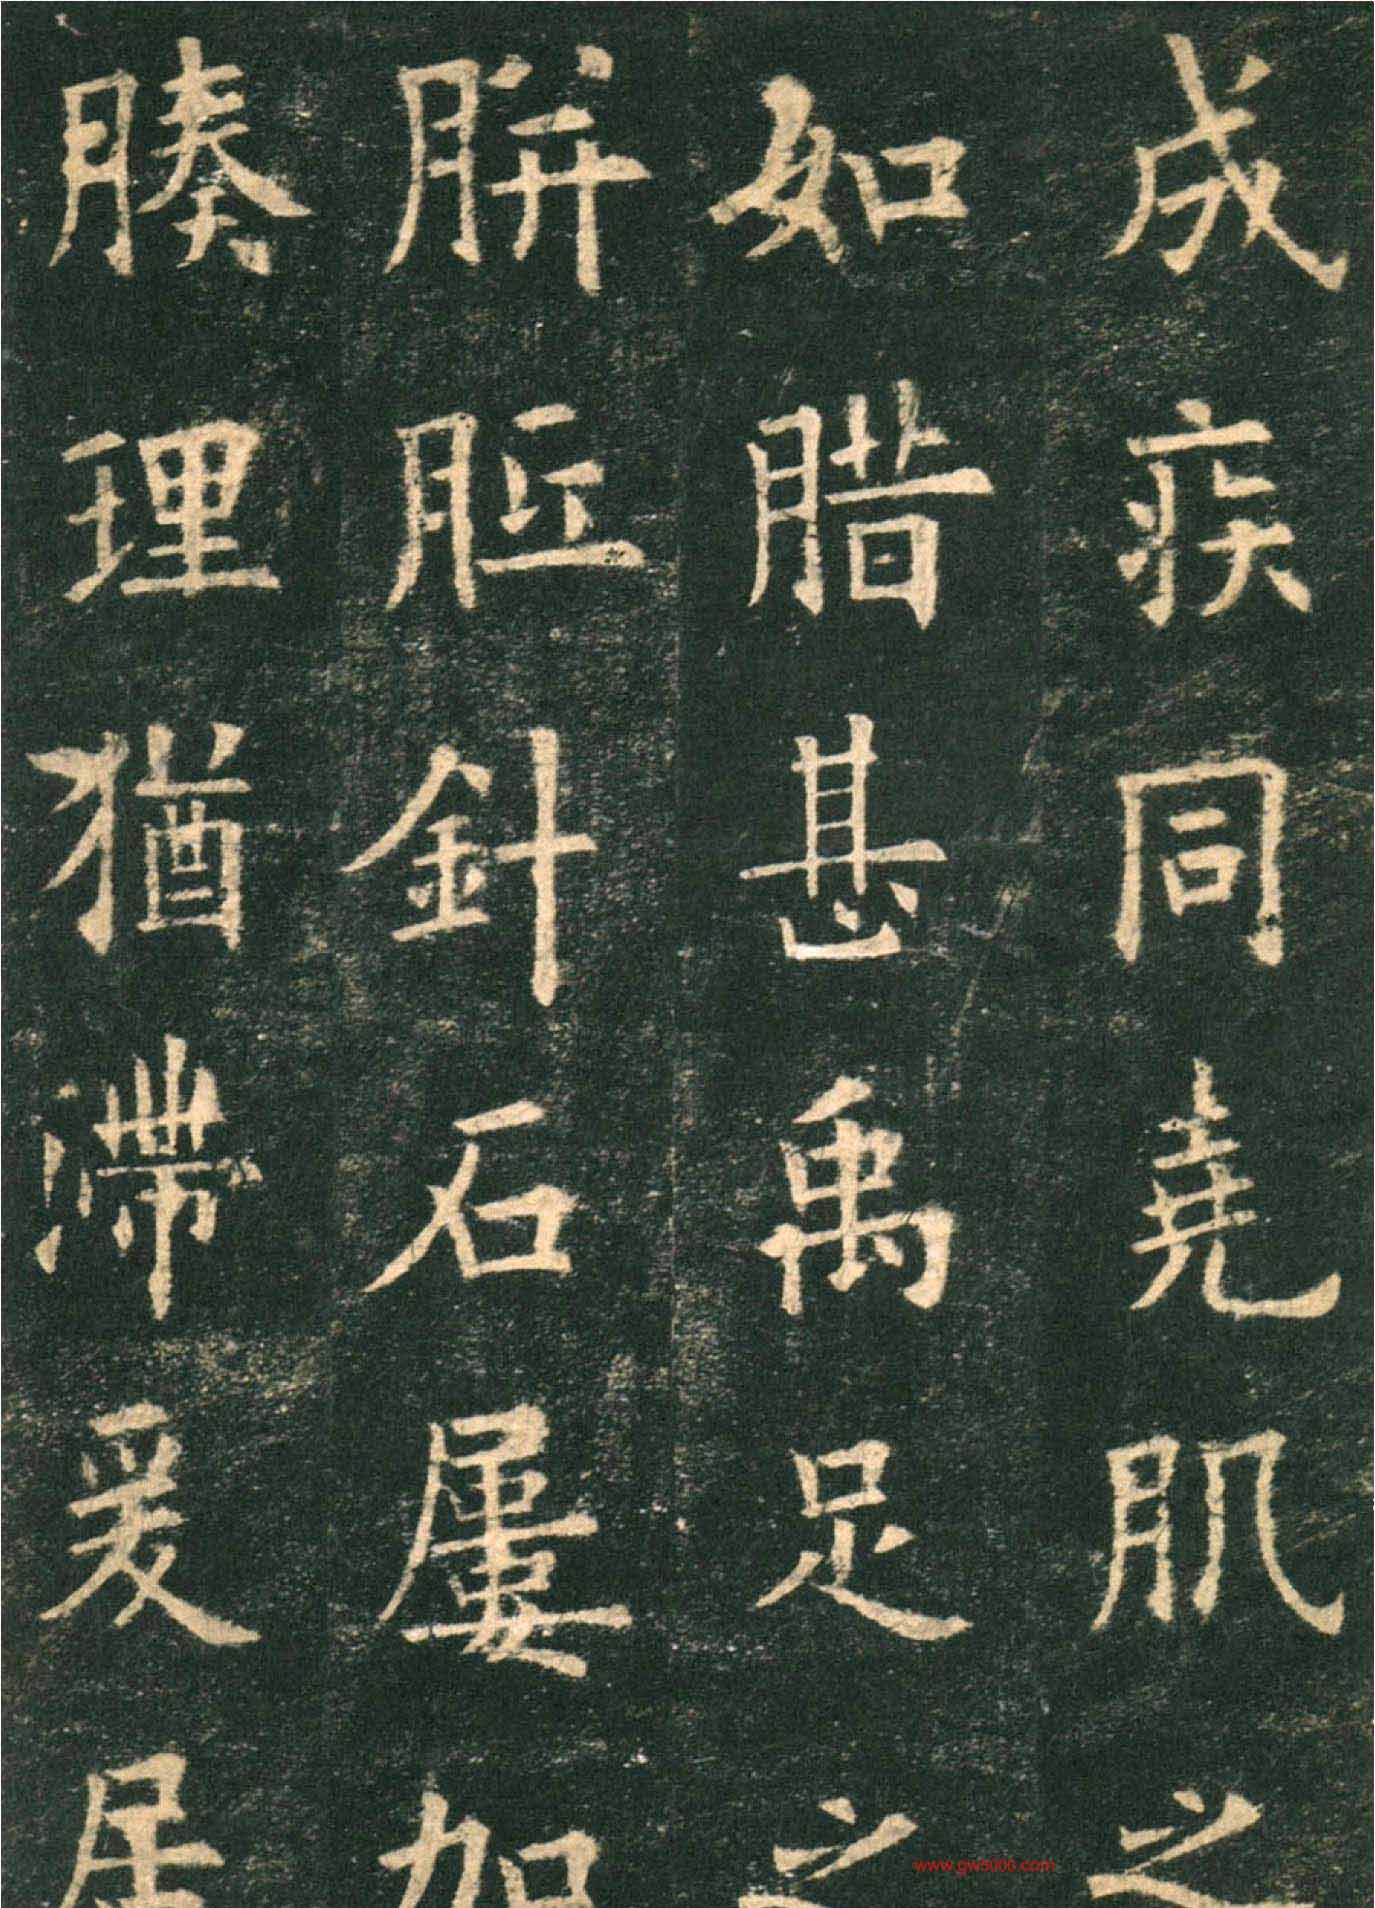 成疾同堯肌之
如腊甚禹足之
胼胝針石屢加
腠理猶滯爰居
www.gw5000.com